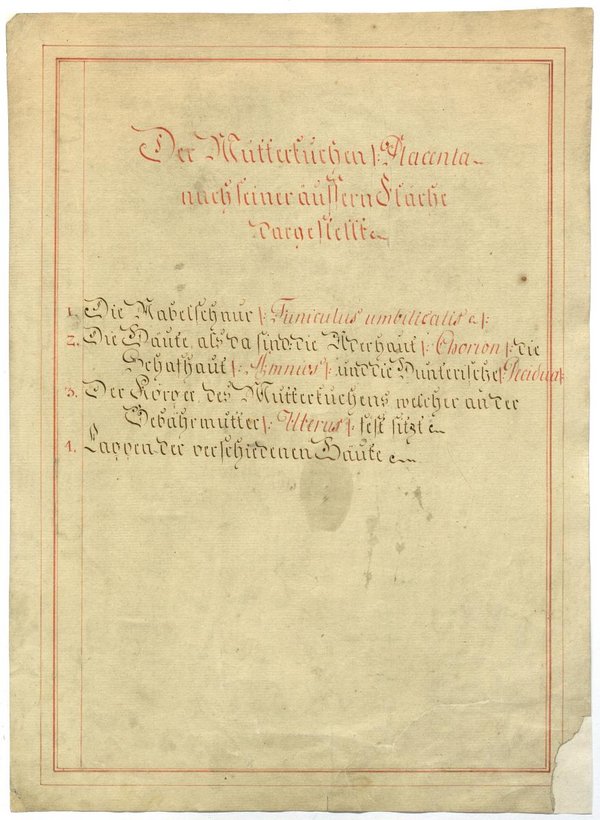 Der Mutterkuchen |: Placenta
nach seiner äussern Fläche
dargestellt
1. Die Nabelschnur |: Funiculus umbilicalis :|
2. Die Häute, als da sind: die Aderhaut |: Chorion :| die
Schafhaut |: Amnios :| und die Hunterische |: Decidua :|
3. Der Körper des Mutterkuchens welcher an der
Gebährmutter |: Uterus :| fest sitzt
4. Lappen der verschiedenen Häute